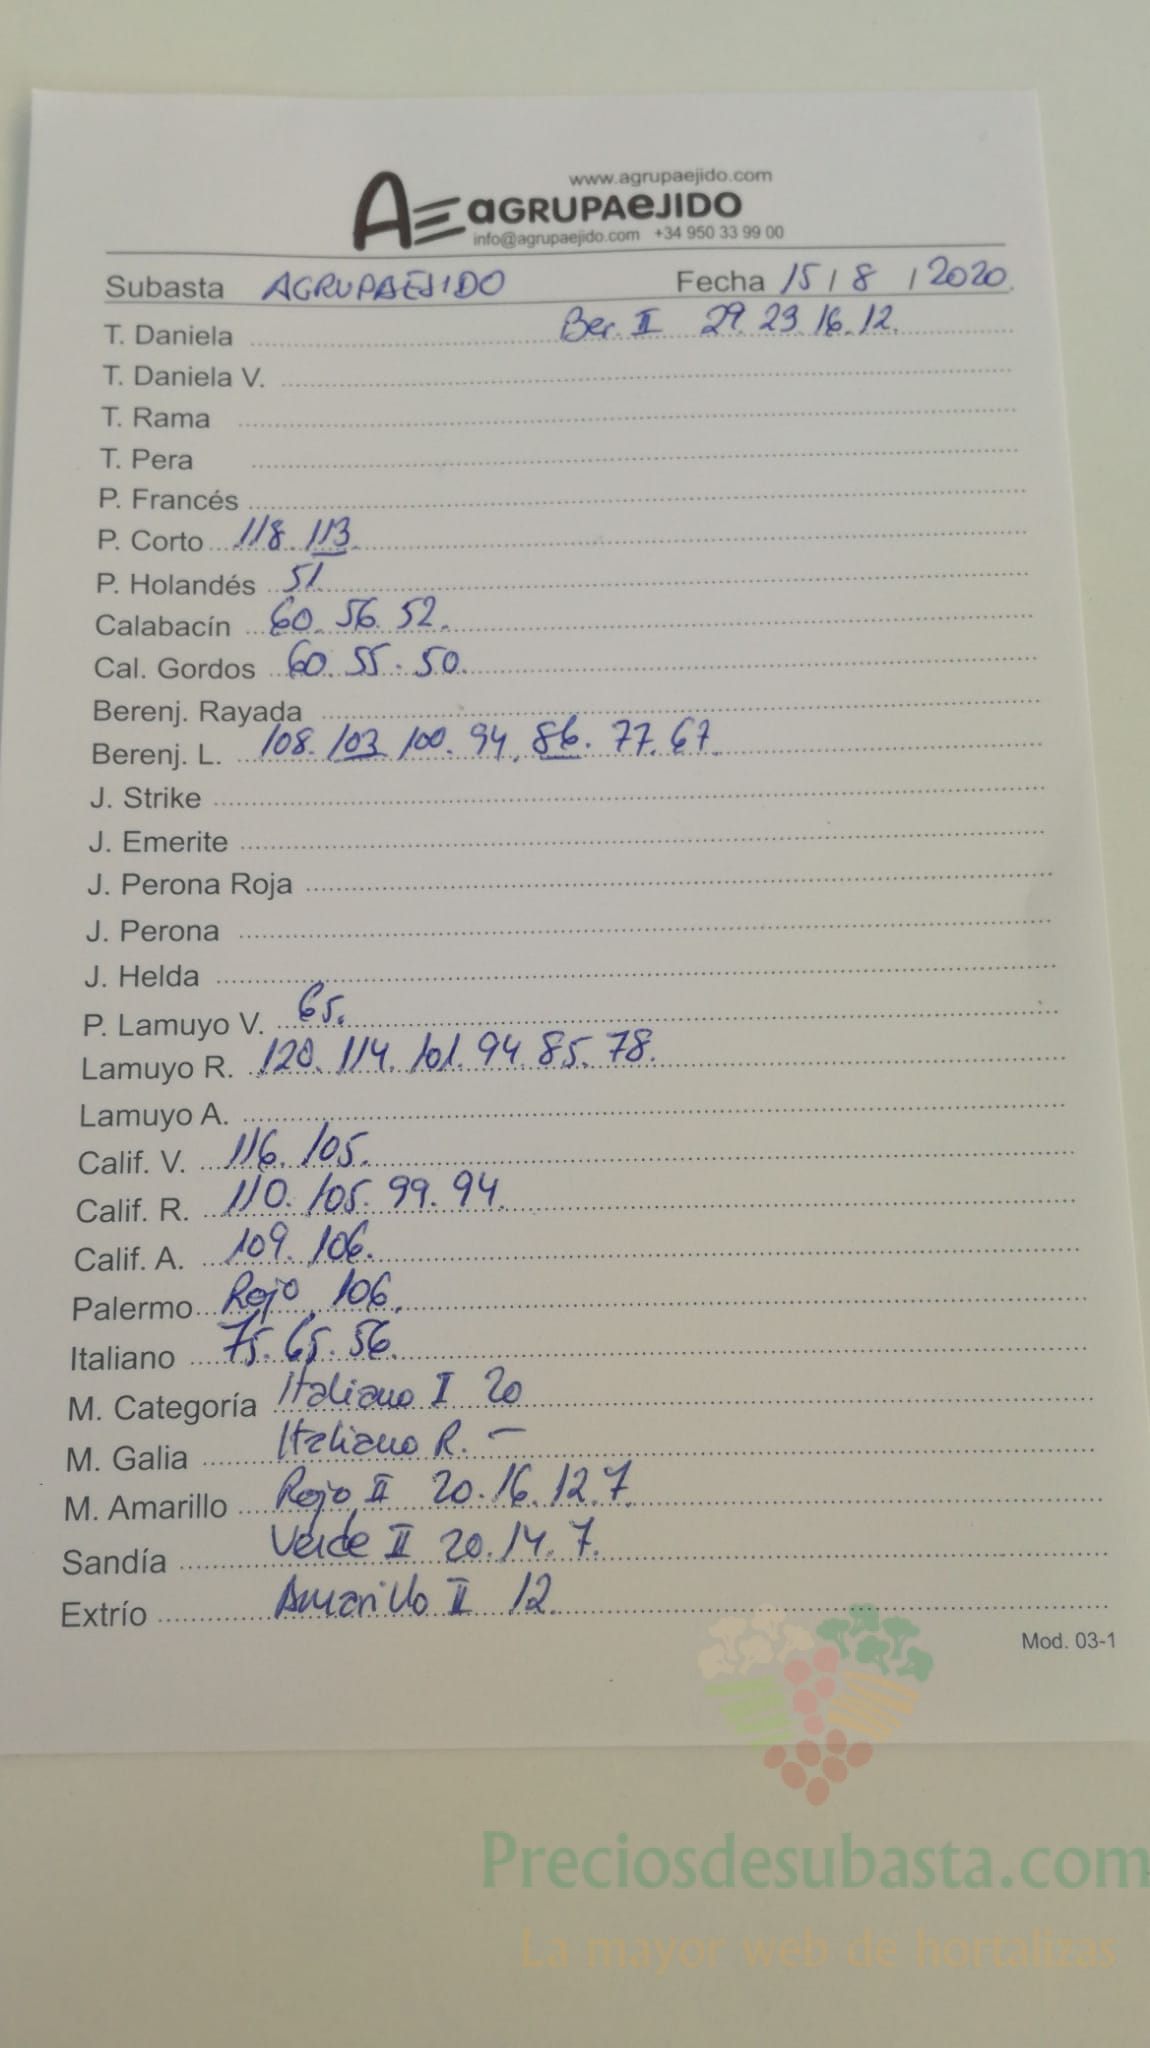 www.agrupaejido.com
AE aGRUPAeJIDO
info@agrupaejido.com +34 950 33 99 00
Subasta AGRUPAEJIDO Fecha 15 / 8 / 2020.
Ber. II 29. 23. 16. 12.
T. Daniela
T. Daniela V.
T. Rama
T. Pera
P. Francés
P. Corto 118. 113
P. Holandés 51.
Calabacín 60. 56. 52.
Cal. Gordos 60. 55. 50.
Berenj. Rayada
Berenj. L. 108. 103 100. 94. 86. 77. 67.
J. Strike
J. Emerite
J. Perona Roja
J. Perona
J. Helda
P. Lamuyo V. 65.
Lamuyo R. 120. 114. 101. 94. 85. 78.
Lamuyo A.
Calif. V. 116. 105.
Calif. R. 110. 105. 99. 94.
Calif. A. 109. 106.
Palermo Rojo 106.
Italiano 75. 65. 56.
M. Categoría Italiano I 20
M. Galia Italiano R. -
M. Amarillo Rojo II 20. 16. 12. 7.
Sandía Verde II 20. 14. 7.
Extrío Amarillo II 12.
Mod. 03-1
Preciosdesubasta.com
La mayor web de hortalizas